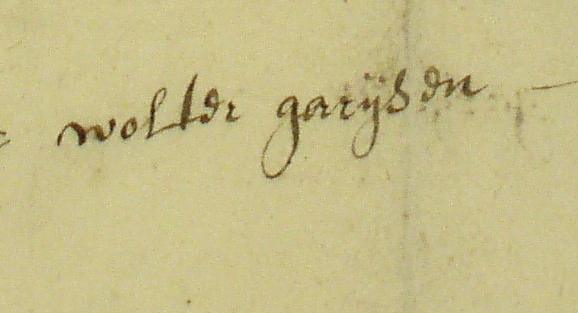 wolter garijsen